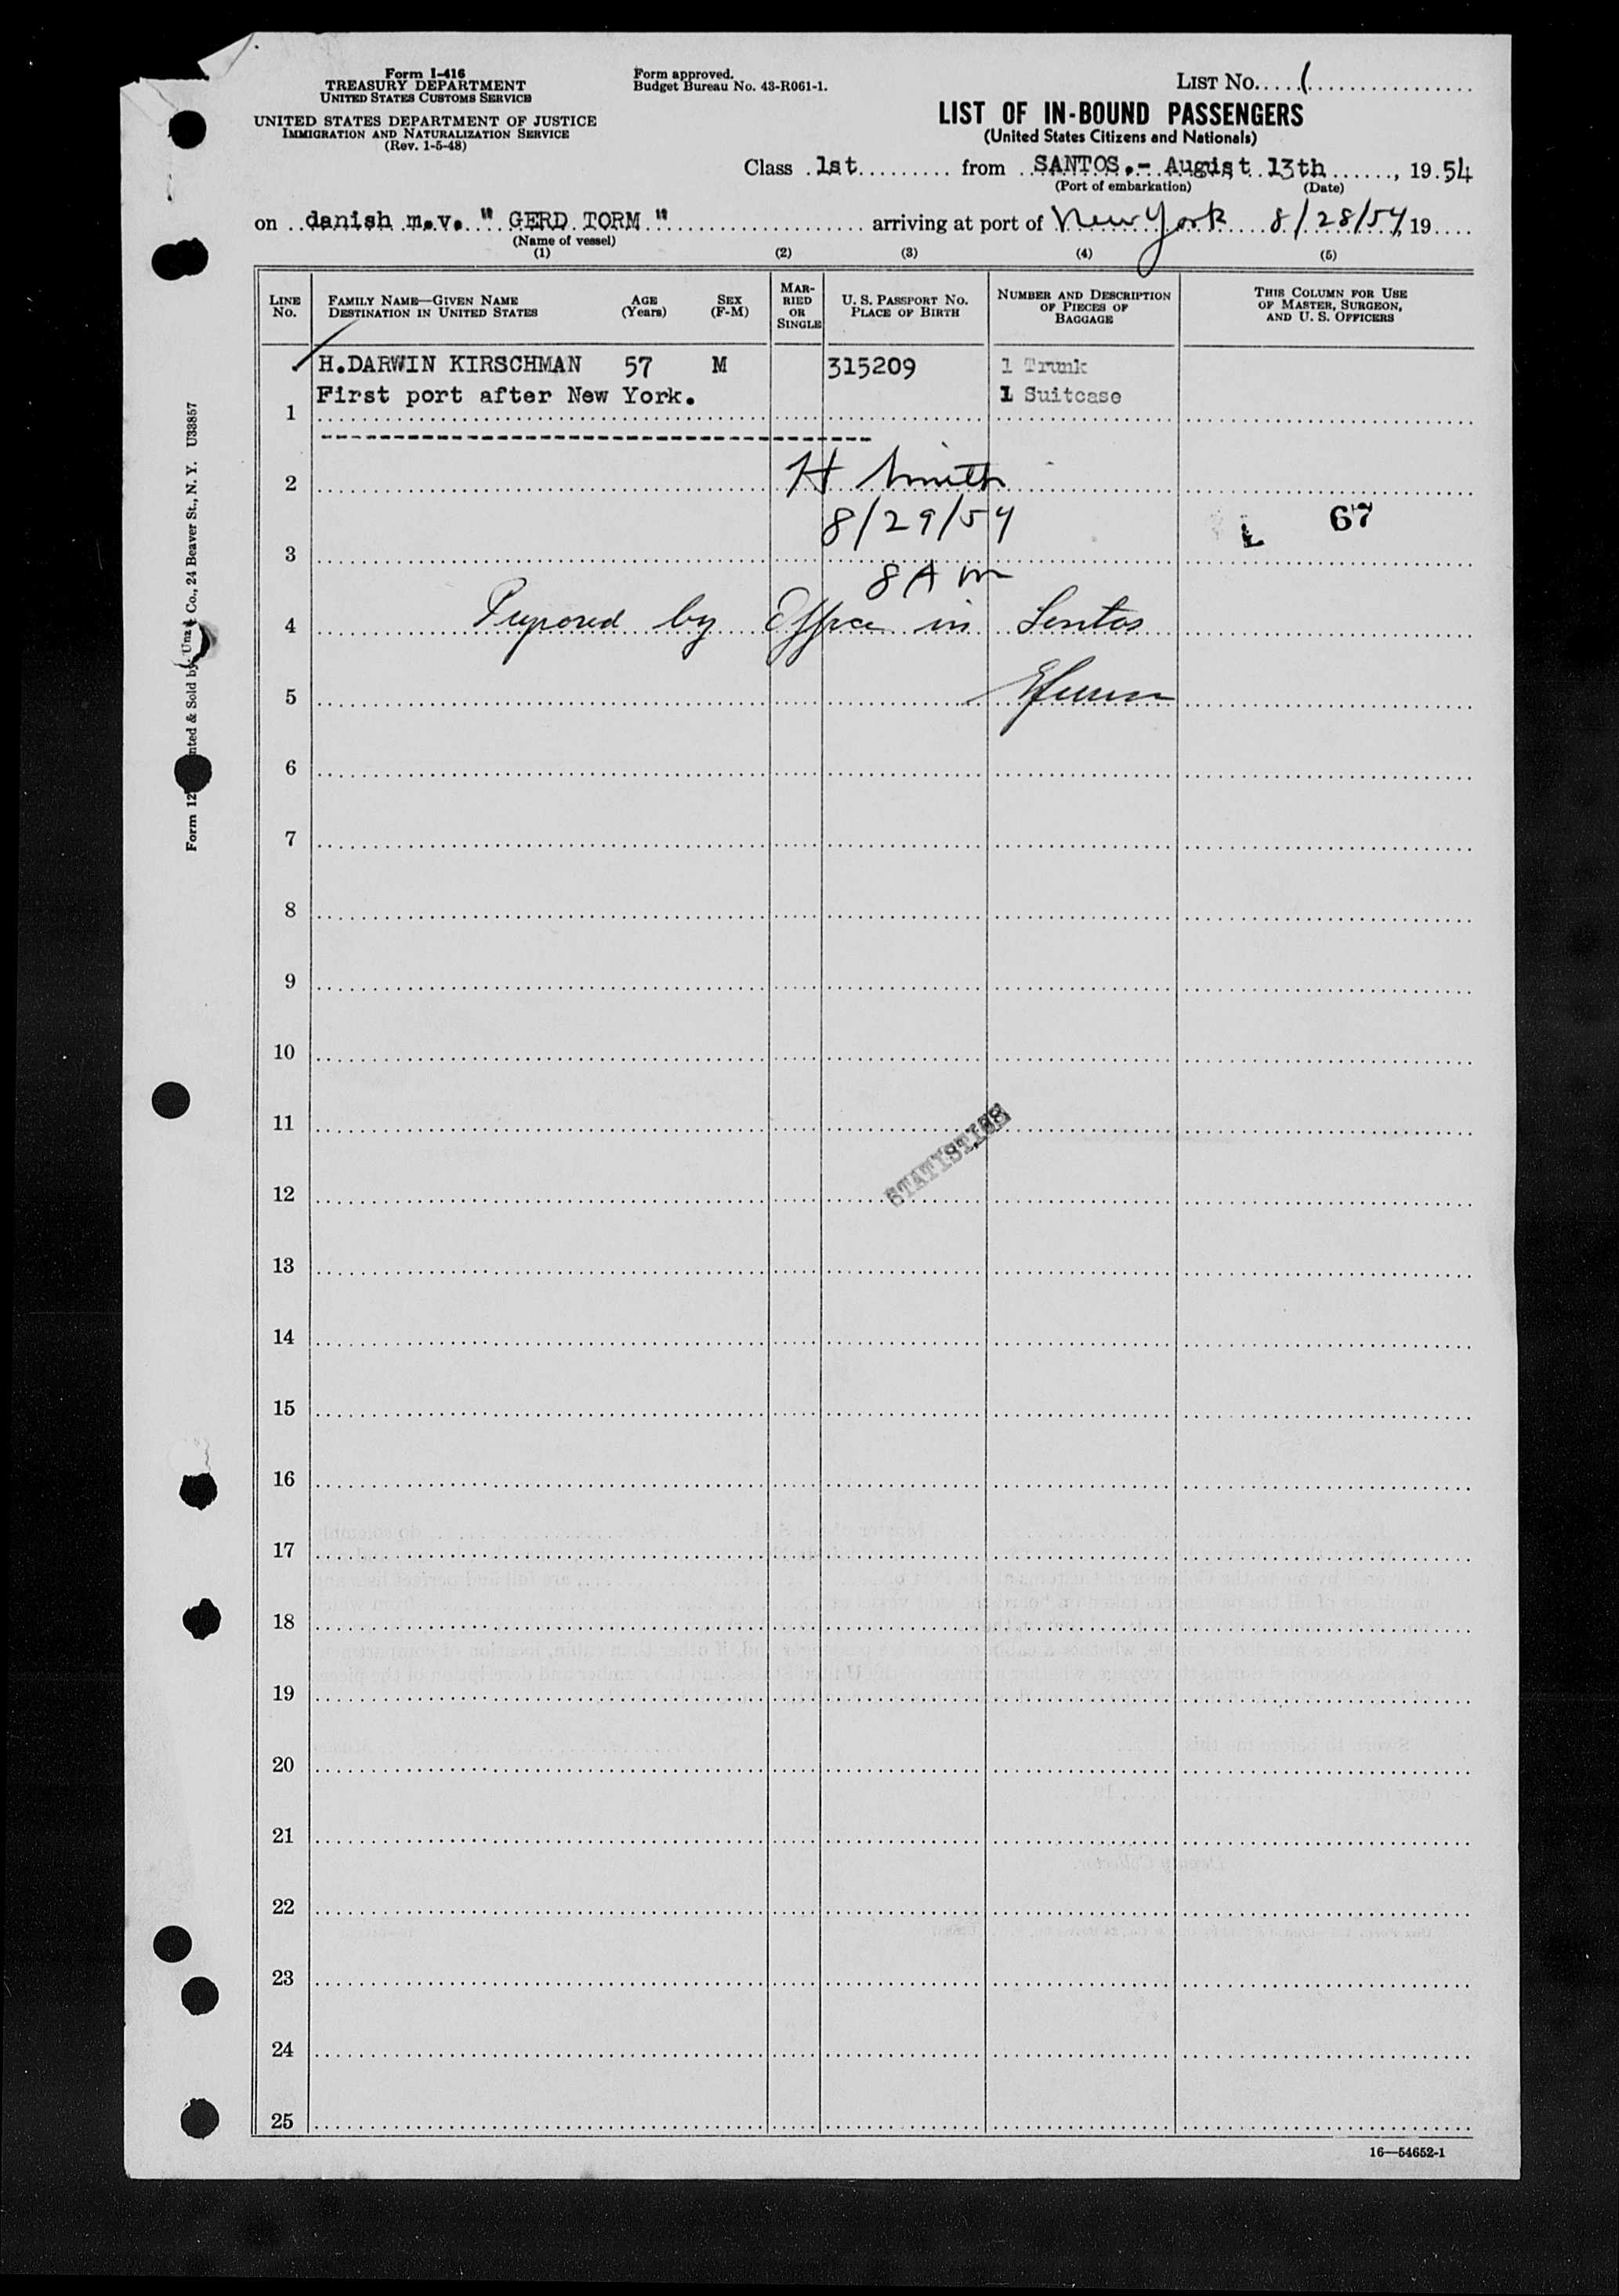 Form I-416
TREASURY DEPARTMENT
UNITED STATES CUSTOMS SERVICE
UNITED STATES DEPARTMENT OF JUSTICE
IMMIGRATION AND NATURALIZATION SERVICE
(Rev. 1-5-48)
Form approved.
Budget Bureau No. 43-R061-1.
LIST NO. 1
LIST OF IN-BOUND PASSENGERS
(United States Citizens and Nationals)
Class 1st from SANTOS.- Augist 13th, 1954
(Port of embarkation) (Date)
on danish m.v. " GERD TORM " arriving at port of New York 8/28/54, 19
(Name of vessel)
(1) (2) (3) (4) (5)
LINE NO.
FAMILY NAME—GIVEN NAME
DESTINATION IN UNITED STATES
AGE (Years)
SEX (F-M)
MARRIED OR SINGLE
U. S. PASSPORT NO.
PLACE OF BIRTH
NUMBER AND DESCRIPTION OF PIECES OF BAGGAGE
THIS COLUMN FOR USE OF MASTER, SURGEON, AND U. S. OFFICERS
H.DARWIN KIRSCHMAN 57 M 315209 1 Trunk
First port after New York. 1 Suitcase
1
2 H Smith
8/29/54
L 67
3
8 A m
4 Prepared by Office in Santos
5
6
7
8
9
10
11
STATISTICS
12
13
14
15
16
17
18
19
20
21
22
23
24
25
16—54652-1
Co., 24 Beaver St., N. Y. U33857